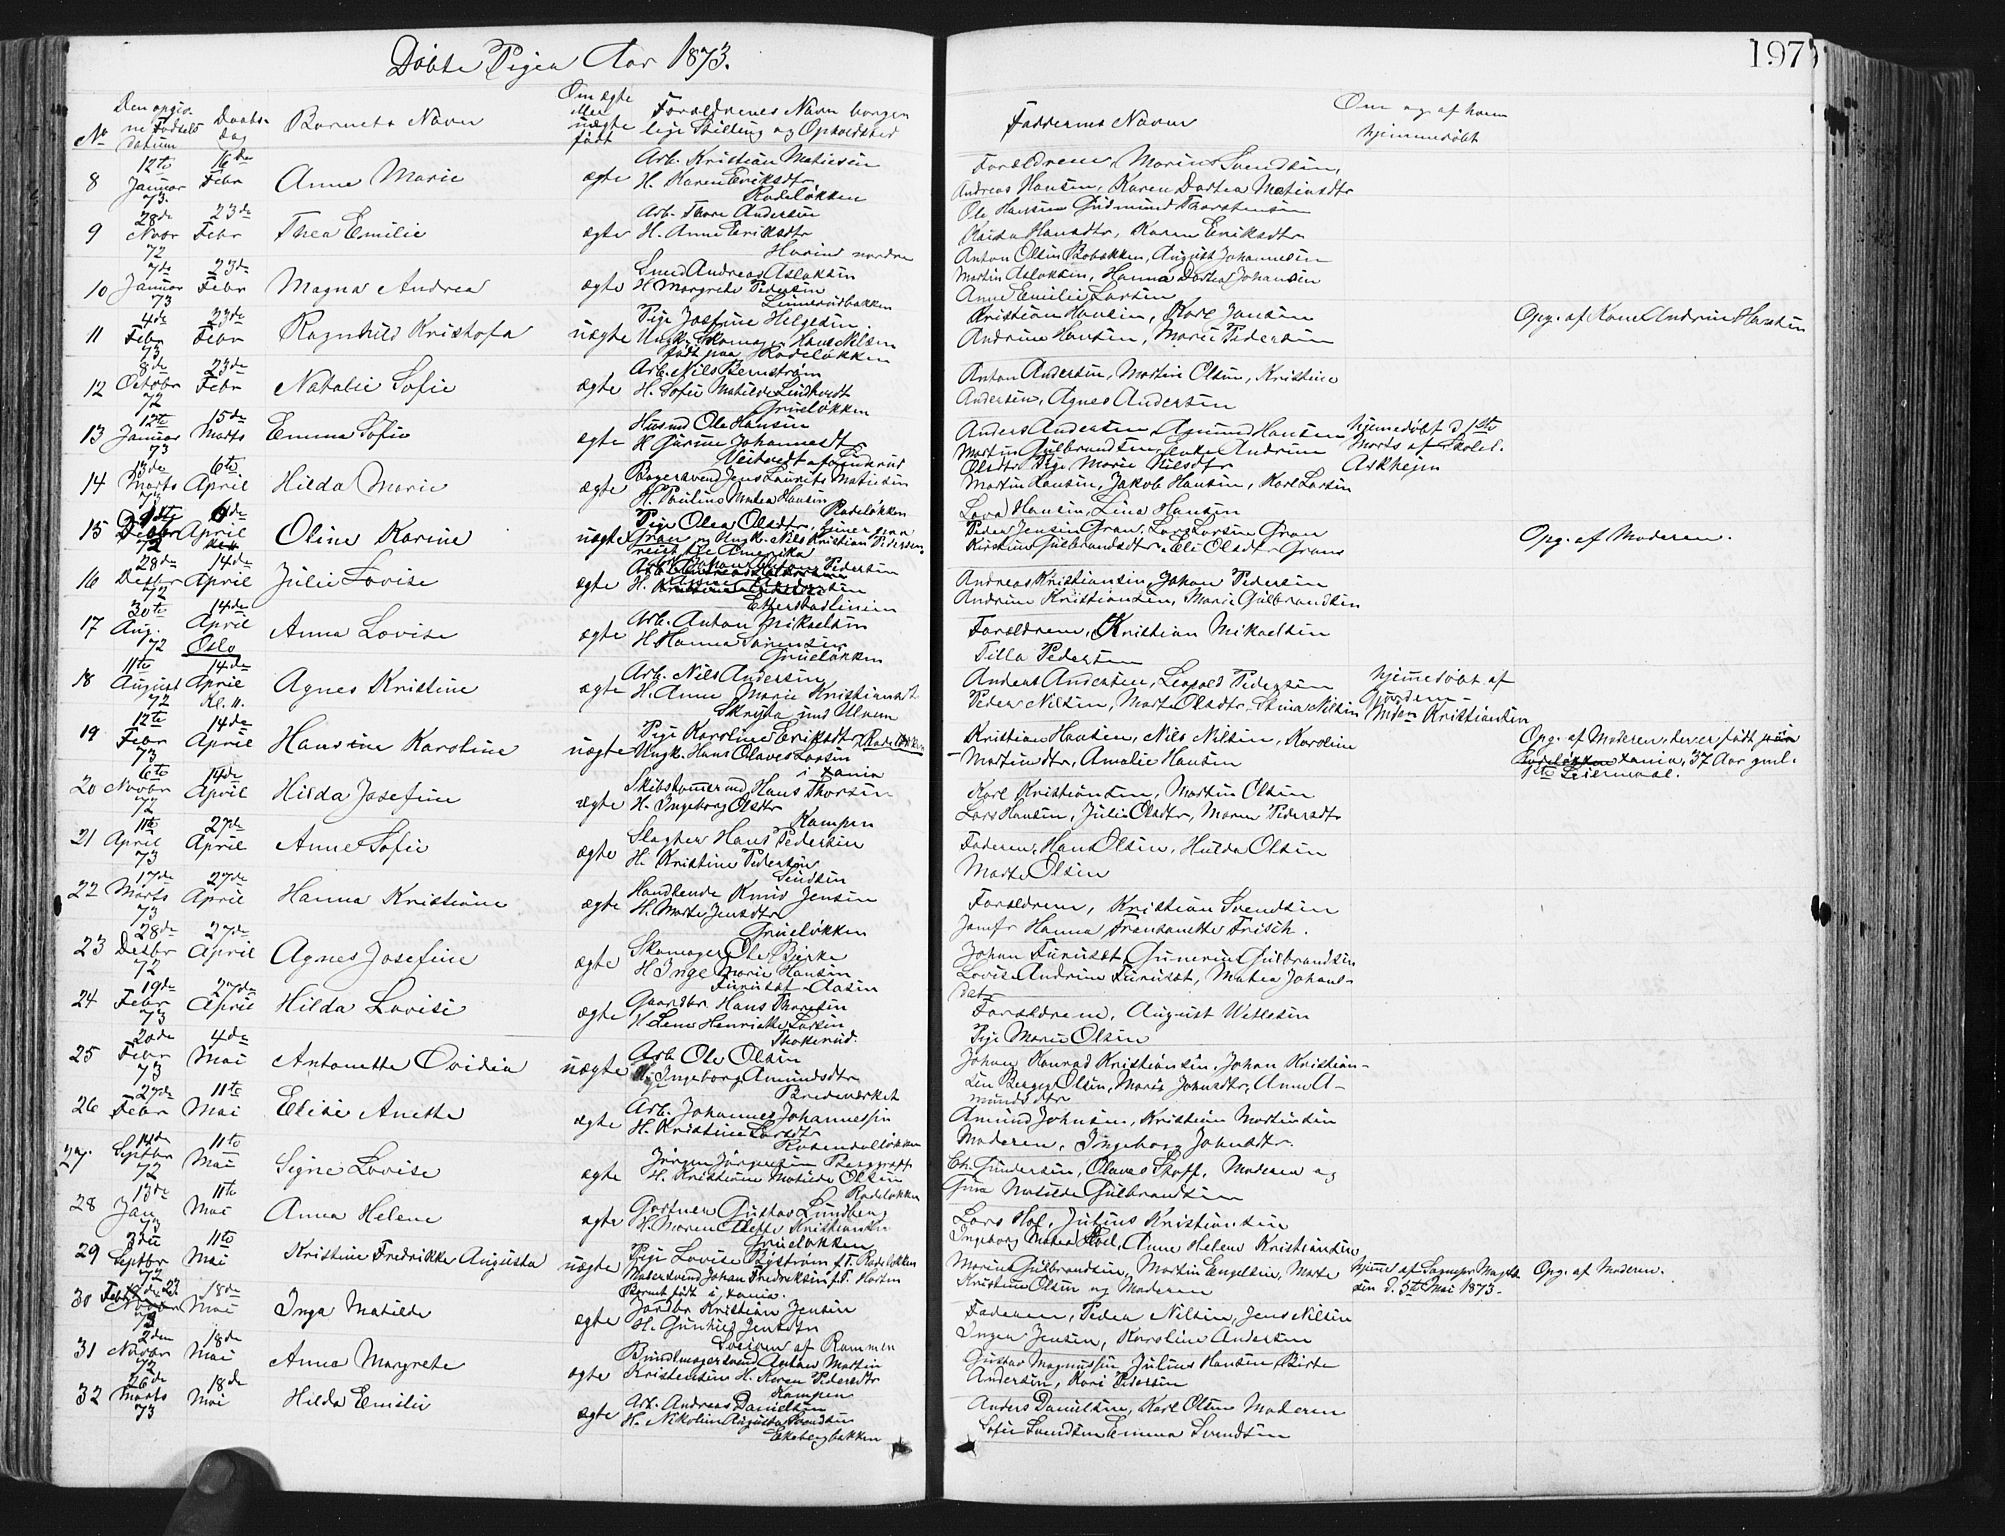 197
Döbte Piger Aar 1873.
No
Den opgivne Fødsels datum
Daabsdag
Barnets Navn
Om ægte eller uægte født
Forældrenes Navn borgerlige Stilling og Opholdsted
Faddernes Navn
Om og af hvem hjemmedøbt
8 12te Januar 73. 16de Febr Anna Marie ægte
Arb. Kristian Matiesen
H. Karen Eriksdtr
Rodeløkken
Forældrene, Marius Svendsen,
Andreas Hansen, Karen Dortea Matiasdtr
9 28de Novbr 72 23de Febr Thea Emilie ægte
Arb. Thore Andersen
H. Anne Eriksdtr
nordre
Ole Hansen Gudmund Thorstensen
Hansdtr, Karen Eriksdtr
10 7de Januar 73 23de Febr Magna Andrea ægte
Smed Andreas Aslaksen
H. Margrete Pedersen
Anton Olsen August Johannesen
Martin Aslaksen, Hanna Dortea Johansen
Anne Emilie Larsen
11 4de Febr 73 23de Febr Ragnhild Kristofa uægte
Pige Josefine Helgesen
Ungk. Skomager Hans Nilsen
født paa Rodeløkken
Kristian Hansen, Karl Jansen
Andrine Hansen, Marie Pedersen
Opg. af Kone Andrine Hansen
12 8de Octobr 72 23de Febr Natalie Sofie ægte
Arb. Nils Bernstrøm
H. Sofie Matilde Lindkvist
Grüneløkken
Anton Andersen, Martin Olsen, Kristine
Andersen, Agnes Andersen
13 12te Januar 73 15de Marts Emma Sofie ægte
Husmd Ole Hansen
H. Gurine Johannesdtr
Anders Andersen, Amund Hansen
Martin Gulbrandsen, Enke Andrine
Olsdtr Pige Marie Nilsdtr
hjemmedøbt d. 1ste
Marts af Skolel.
Askhejm
14 13de Marts 73 6te April Hilda Marie ægte
Bagersvend Jens Laurits Matiesen
H. Pauline Matea Hansen
Rodeløkken
Martin Hansen, Jakob Hansen, Karl Larsen
Hansen, Lina Hansen
15 Desbr 72 April Oline Karine uægte
Pige Olea Olsdtr, tjener paa
Gran og Ungk. Nils Kristian Pedersen
reist til Amerika
Peder Jensen Gran, Lars Larsen Gran
Kirstine Gulbrandsdtr, Eli Olsdtr Gran
Opg. af Moderen.
16 28de Desbr 72 14de April Julie Lovise ægte
Arb. Johan Anton Pedersen
Etterstadlinien
Andreas Kristiansen, Johan Pedersen
Andrine Kristiansen, Marie Gulbrandsen
17 30te Aug. 72 14de April Oslo Anna Lovise ægte
Arb. Anton Mikaelsen
H. Hanna Sørensen
Grüneløkken
Forældrene, Kristian Mikaelsen
Tilla Pedersen
18 11te August 72 14de April Kl. 11. Agnes Kristine ægte
Arb. Nils Andersen
H. Anne Marie Kristiansdt
Anders Andersen, Leopold Pedersen
Peder Nilsen, Marte Olsdtr, Stina Nilsen
hjemmedøbt af
Kristiansen
19 12te Febr 73 14de April Hansine Karoline uægte
Pige Karoline Eriksdtr Rodeløkken
Ungk. Hans Olaves Larsen
i Xania
Kristian Hansen, Nils Nilsen, Karoline
Martinsdtr, Amalie Hansen
Opg. af Moderen, der er født
Xania, 37 Aar gml.
1ste Leiermaal.
20 6te Novbr 72 14de April Hilda Josefine ægte
Skibstømmermd Hans Thorsen
H. Ingeborg Olsdtr
Kampen
Karl Kristiansen, Martin Olsen
Lars Hansen, Julie Olsdtr, Maren Pedersdtr
21 11te April 73 27de April Anne Sofie ægte
Slagter Hans Pedersen
H. Kristine Pedersen
Faderen, Hans Olsen, Hulda Olsen
Marte Olsen
22 17de Marts 73 27de April Hanna Kristiane ægte
Handlende Knud Jensen
H. Marte Jensdtr
Grüneløkken
Forældrene, Kristian Svendsen
Jomfr Hanna, Fransanette Frisch.
23 28de Desbr 72 27de April Agnes Josefine ægte
Skomager Ole Bjerke
H. Inge Marie Hansen
Furuset-Aasen
Johan Furuset, Gunerius Gulbrandsen
Lovise Andrine Furuset, Matea Johans-
datr
24 19de Febr 73 27de April Hilda Lovise ægte
Gaardbr Hans Thoresen
H. Lene Henriette Larsen
Forældrene, August Wetlesen
Pige Marie Olsen
25 20de Febr 73 4de Mai Antonette Ovidia uægte
Arb. Ole Olsen
Ingeborg Amundsdtr
Bredeverket
Johan Konrad Kristiansen, Johan Kristian-
sen Berger Olsen, Marie Johnsdtr, Anne A-
mundsdtr
26 27de Febr 73 11te Mai Elise Anette ægte
Arb. Johannes Johannessen
H. Kristine Larsdtr
Rosendalløkken
Amund Johnsen, Kristian Mortensen
Moderen, Ingeborg Johnsdtr.
27. 14de Septbr 72 11te Mai Signe Lovise ægte
Jørgen Jørgensen Berggraff
H. Kristiane Matilde Olsen
Rodeløkken
Ch. Gundersen, Olaves Skoff, Moderen og
Gina Matilde Gulbrandsen
28 13de Jan 73 11te Mai Anna Helene ægte
Gartner Gustav Lundberg
H. Maren Elette Kristiansen
Grüneløkken
Lars Hol, Julius Kristiansen
Ingeborg Matea Hoel, Anne Helene Kristiansen
29 3die Septbr 72 11te Mai Kristine Fredrikke Augusta uægte
Pige Lovise Byström f. T. Rodeløkken
Malersvend Johan Fredriksen f. T. Horten
Barnet født i Xania.
Marius Gulbrandsen, Martin Engelsen, Marte
Kristine Olsen og Moderen
hjemme af Sognepr. Magels-
sen d. 5te Mai 1873.
Opg. af Moderen.
30 Febr 73 18de Mai Inga Matilde ægte
Jordbr Kristian Jensen
H. Gunhild Jensdtr
Faderen, Peder Nilsen, Jens Nilsen
Inger Jensen, Karoline Andersen
31 2den Novbr 72 18de Mai Anna Margrete ægte
Bundtmagersvend Anton Martin
Kristensen H. Karen Pedersdtr
Kampen
Gustav Magnussen Julius Hansen, Birte
Andersen, Kari Pedersen
32 26de Marts 73 18de Mai Hilda Emilie ægte
Arb. Andreas Danielsen
H. Nikoline Augusta Svendsen
Ekebergbakken
Anders Danielsen, Karl Olsen Moderen
Sofie Svendsen Emma Svendsen